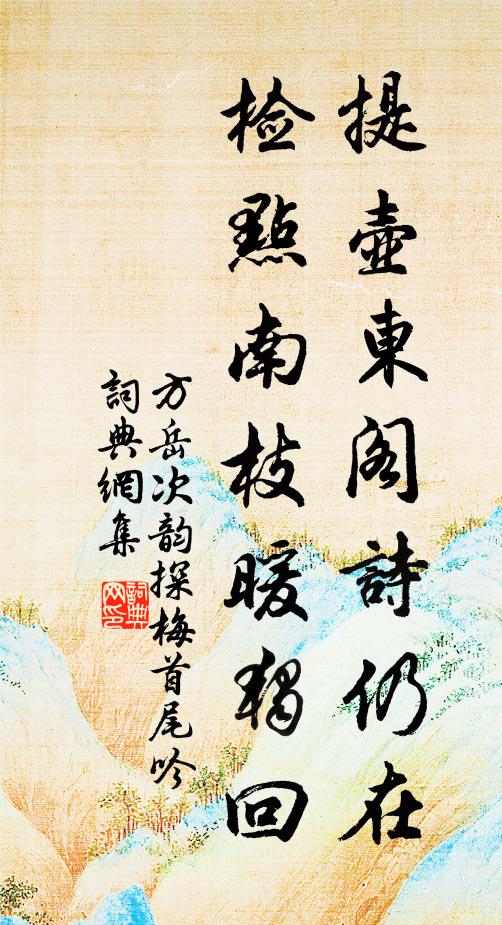 提壺東閣詩仍在
檢點南枝暖獨回
方岳次韵探梅首尾吟
詞典網集
詞典网印